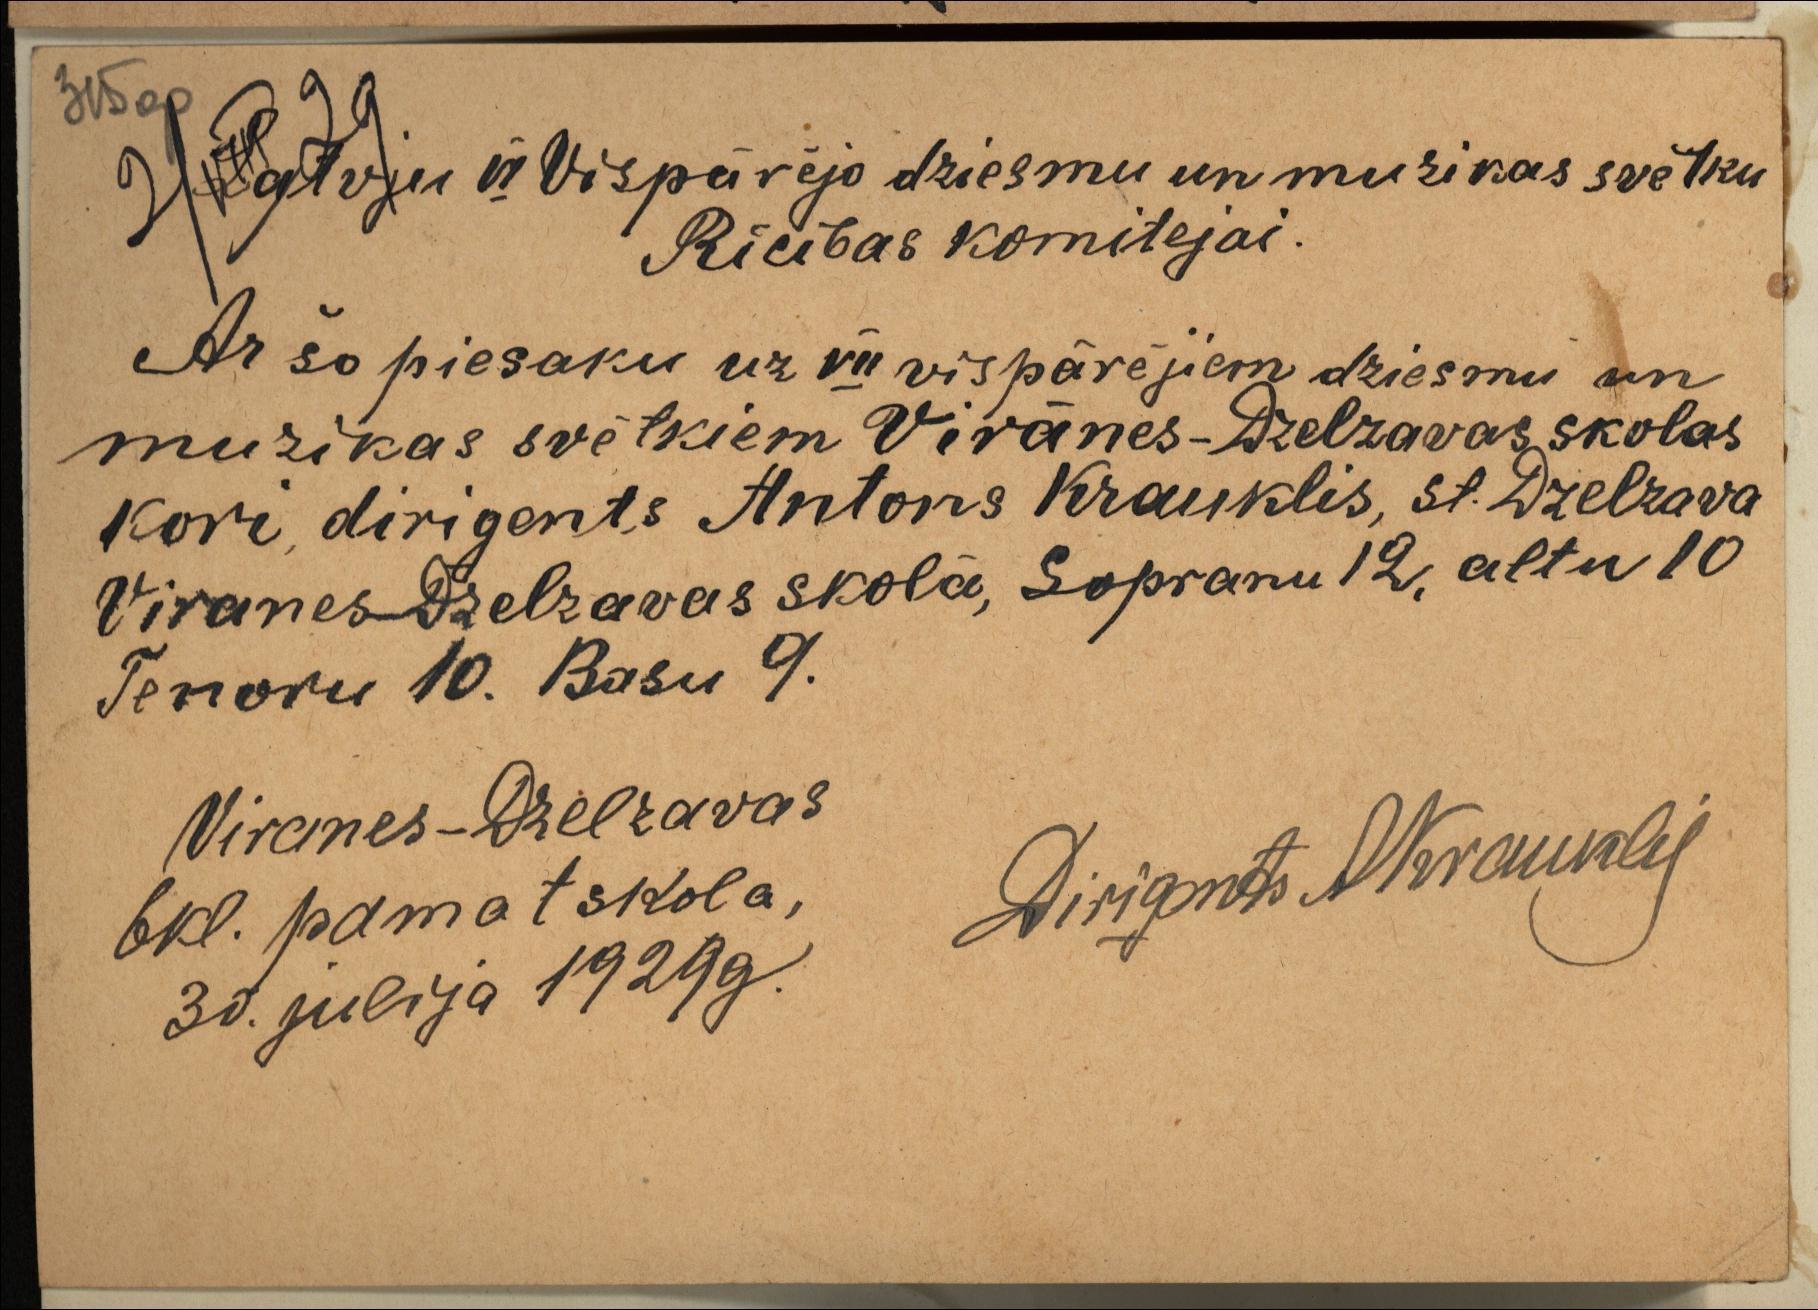 Latvju VII Vispārējo dziesmu un muzikas svētku
Rīcības Komitejai.
Ar šo piesaku uz VII vispārējiem dziesmu un
muzikas svētkiem Virānes-Dzelzavas skolas
kori, dirigents Antons Krauklis, st. Dzelzava
Viranes-Dzelzavas skolā, Sopranu 12, altu 10
Tenoru 10. Basu 9.
Viranes-Dzelzavas
6kl. pamatskola,
30. julija 1929g.
Dirigents AKrauklis